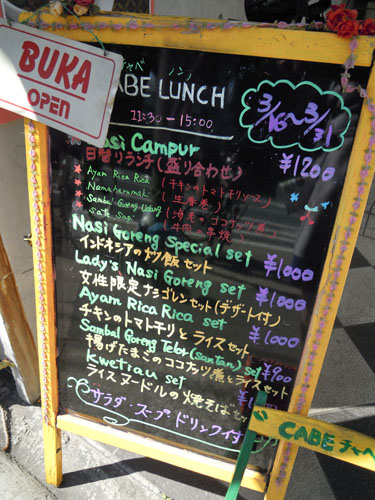 BUKA
OPEN
チャベ ノン
CABE LUNCH
11:30-15:00
3/16~3/31
Nasi Campur ¥1200
日替りランチ(盛り合わせ)
Ayam Rica Rica (チキンのトマトチリソース)
Sambal Goreng Udang
Sate Sapi
Nasi Goreng Special set ¥1000
インドネシアの炒飯セット
Lady's Nasi Goreng set ¥1000
女性限定ナシゴレンセット(デザート付)
Ayam Rica Rica set ¥1000
チキンのトマトチリとライスセット
Sambal Goreng Telor (santan) set ¥900
揚げたまごのココナッツ煮とライスセット
Kwetiau set
ライスヌードルの焼そばセット
サラダ・スープ ドリンク付
CABE チャベ